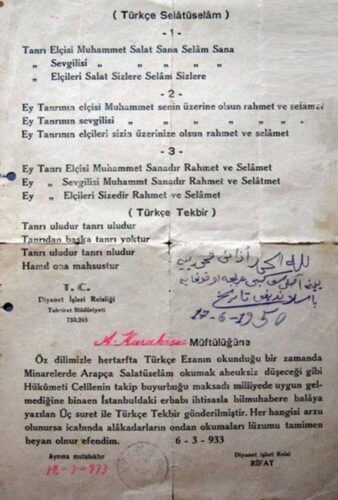 ( Türkçe Selâtüselâm )
- 1 -
Tanrı Elçisi Muhammet Salat Sana Selâm Sana
„ Sevgilisi „ „ „ „ „
„ Elçileri Salat Sizlere Selâm Sizlere
- 2 -
Ey Tanrının elçisi Muhammet senin üzerine olsun rahmet ve selâmet
Ey Tanrının sevgilisi „ „ „ „ „ „ „
Ey Tanrının elçileri sizin üzerinize olsun rahmet ve selâmet
- 3 -
Ey Tanrı Elçisi Muhammet Sanadır Rahmet ve Selâmet
Ey „ Sevgilisi Muhammt Sanadır Rahmet ve Selâtmet
Ey „ Elçileri Sizedir Rahmet ve Selâmet
( Türkçe Tekbir )
Tanrı uludur tanrı uludur
Tanrıdan başka tanrı yoktur
Tanrı uludur tanrı uludur
Hamd ona mahsustur
T. C.
Diyanet İşleri Reisliği
Tahrirat Müdüriyeti
17-6-1950
A. Karahisar Müftülüğüne
Öz dilimizle hertarftа Türkçe Ezanın okunduğu bir zamanda
Minarelerde Arapça Salatüselâm okumak aheuksiz düşeceği gibi
Hükümeti Celilenin takip buyurduğu maksadı milliyede uygun gel-
mediğine binaen İstanbuldaki erbabı ihtisasla bilmuhabere balâya
yazılan Üç suret ile Türkçe Tekbir gönderilmiştir. Her hangisi arzu
olunursa icabında alâkadarların ondan okumaları lüzumu tamimen
beyan olnur efendim. 6 - 3 - 933
Aynına mutabıktır
Diyanet işleri Reisi
RİFAT